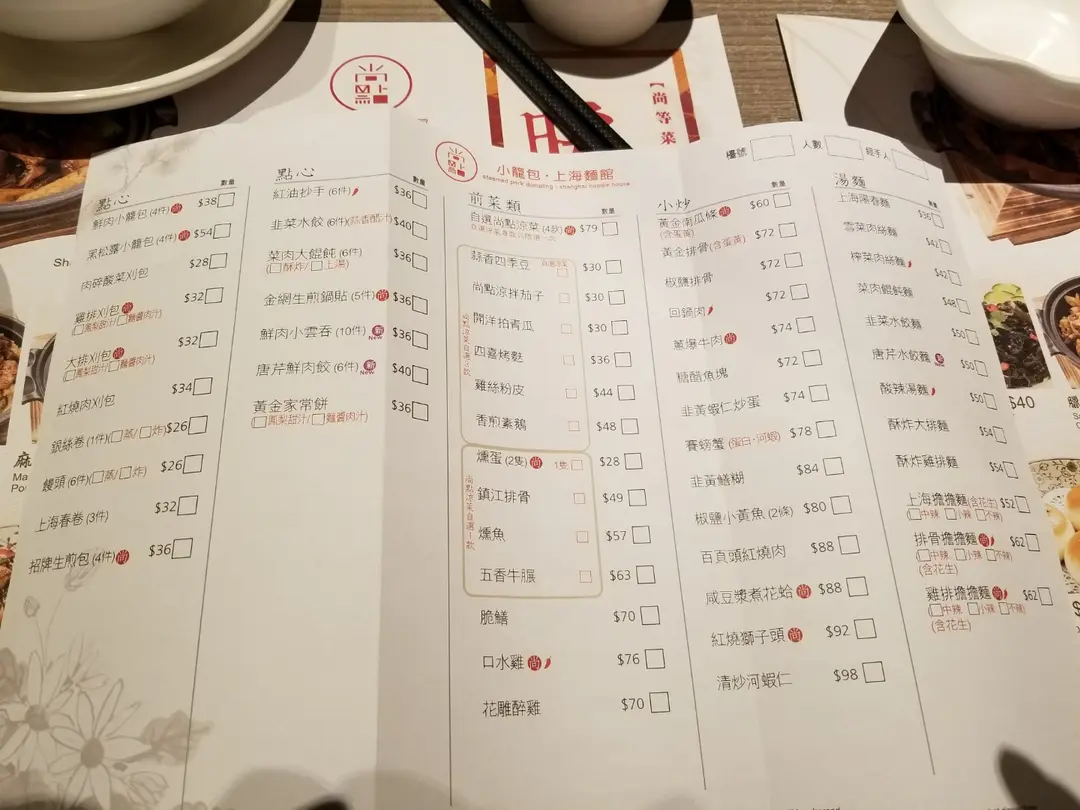 尚點
【尚等菜
小籠包·上海麵館
steamed pork dumpling · shanghai noodle house
檯號
人數
經手人
點心
數量
鮮肉小籠包 (4件) 尚 $38
黑松露小籠包 (4件) 尚 $54
肉碎酸菜刈包 $28
雞排刈包 尚 $32
鳳梨甜汁/麵醬肉汁
大排刈包 尚 $32
鳳梨甜汁/麵醬肉汁
紅燒肉刈包 $34
銀絲卷 (1件)(蒸/炸) $26
饅頭 (6件)(蒸/炸) $26
上海春卷 (3件) $32
招牌生煎包 (4件) 尚 $36
點心
數量
紅油抄手 (6件) $36
韭菜水餃 (6件)(蒜香醋汁) $40
菜肉大餛飩 (6件) $36
(酥炸/上湯)
金網生煎鍋貼 (5件) 尚 $36
鮮肉小雲吞 (10件) 新 New $36
唐芹鮮肉餃 (6件) 新 New $40
黃金家常餅 $36
(鳳梨甜汁/麵醬肉汁)
前菜類
數量
自選尚點涼菜 (4款) 尚 $79
蒜香四季豆 $30
尚點涼拌茄子 $30
開洋拍青瓜 $30
四喜烤麩 $36
雞絲粉皮 $44
香煎素鵝 $48
尚點涼菜自選3款
燻蛋 (2隻) 尚 1隻 $28
鎮江排骨 $49
燻魚 $57
五香牛𦟌 $63
尚點涼菜自選1款
脆鱔 $70
口水雞 尚 $76
花雕醉雞 $70
小炒
數量
黃金南瓜條 尚 $60
(含蛋黃)
黃金排骨 (含蛋黃) $72
椒鹽排骨 $72
回鍋肉 $72
蔥爆牛肉 尚 $74
糖醋魚塊 $72
韭黃蝦仁炒蛋 $74
賽螃蟹 (蛋白·河蝦) $78
韭黃鱔糊 $84
椒鹽小黃魚 (2條) $80
百頁頭紅燒肉 $88
咸豆漿煮花蛤 尚 $88
紅燒獅子頭 尚 $92
清炒河蝦仁 $98
湯麵
數量
上海陽春麵 $36
雪菜肉絲麵 $42
榨菜肉絲麵 $42
菜肉餛飩麵 $48
韭菜水餃麵 $50
唐芹水餃麵 新 $50
酸辣湯麵 $50
酥炸大排麵 $54
酥炸雞排麵 $54
上海擔擔麵 (含花生) $52
(中辣 小辣 不辣)
排骨擔擔麵 尚 $62
(中辣 小辣 不辣)
(含花生)
雞排擔擔麵 尚 $62
(中辣 小辣 不辣)
(含花生)
$40